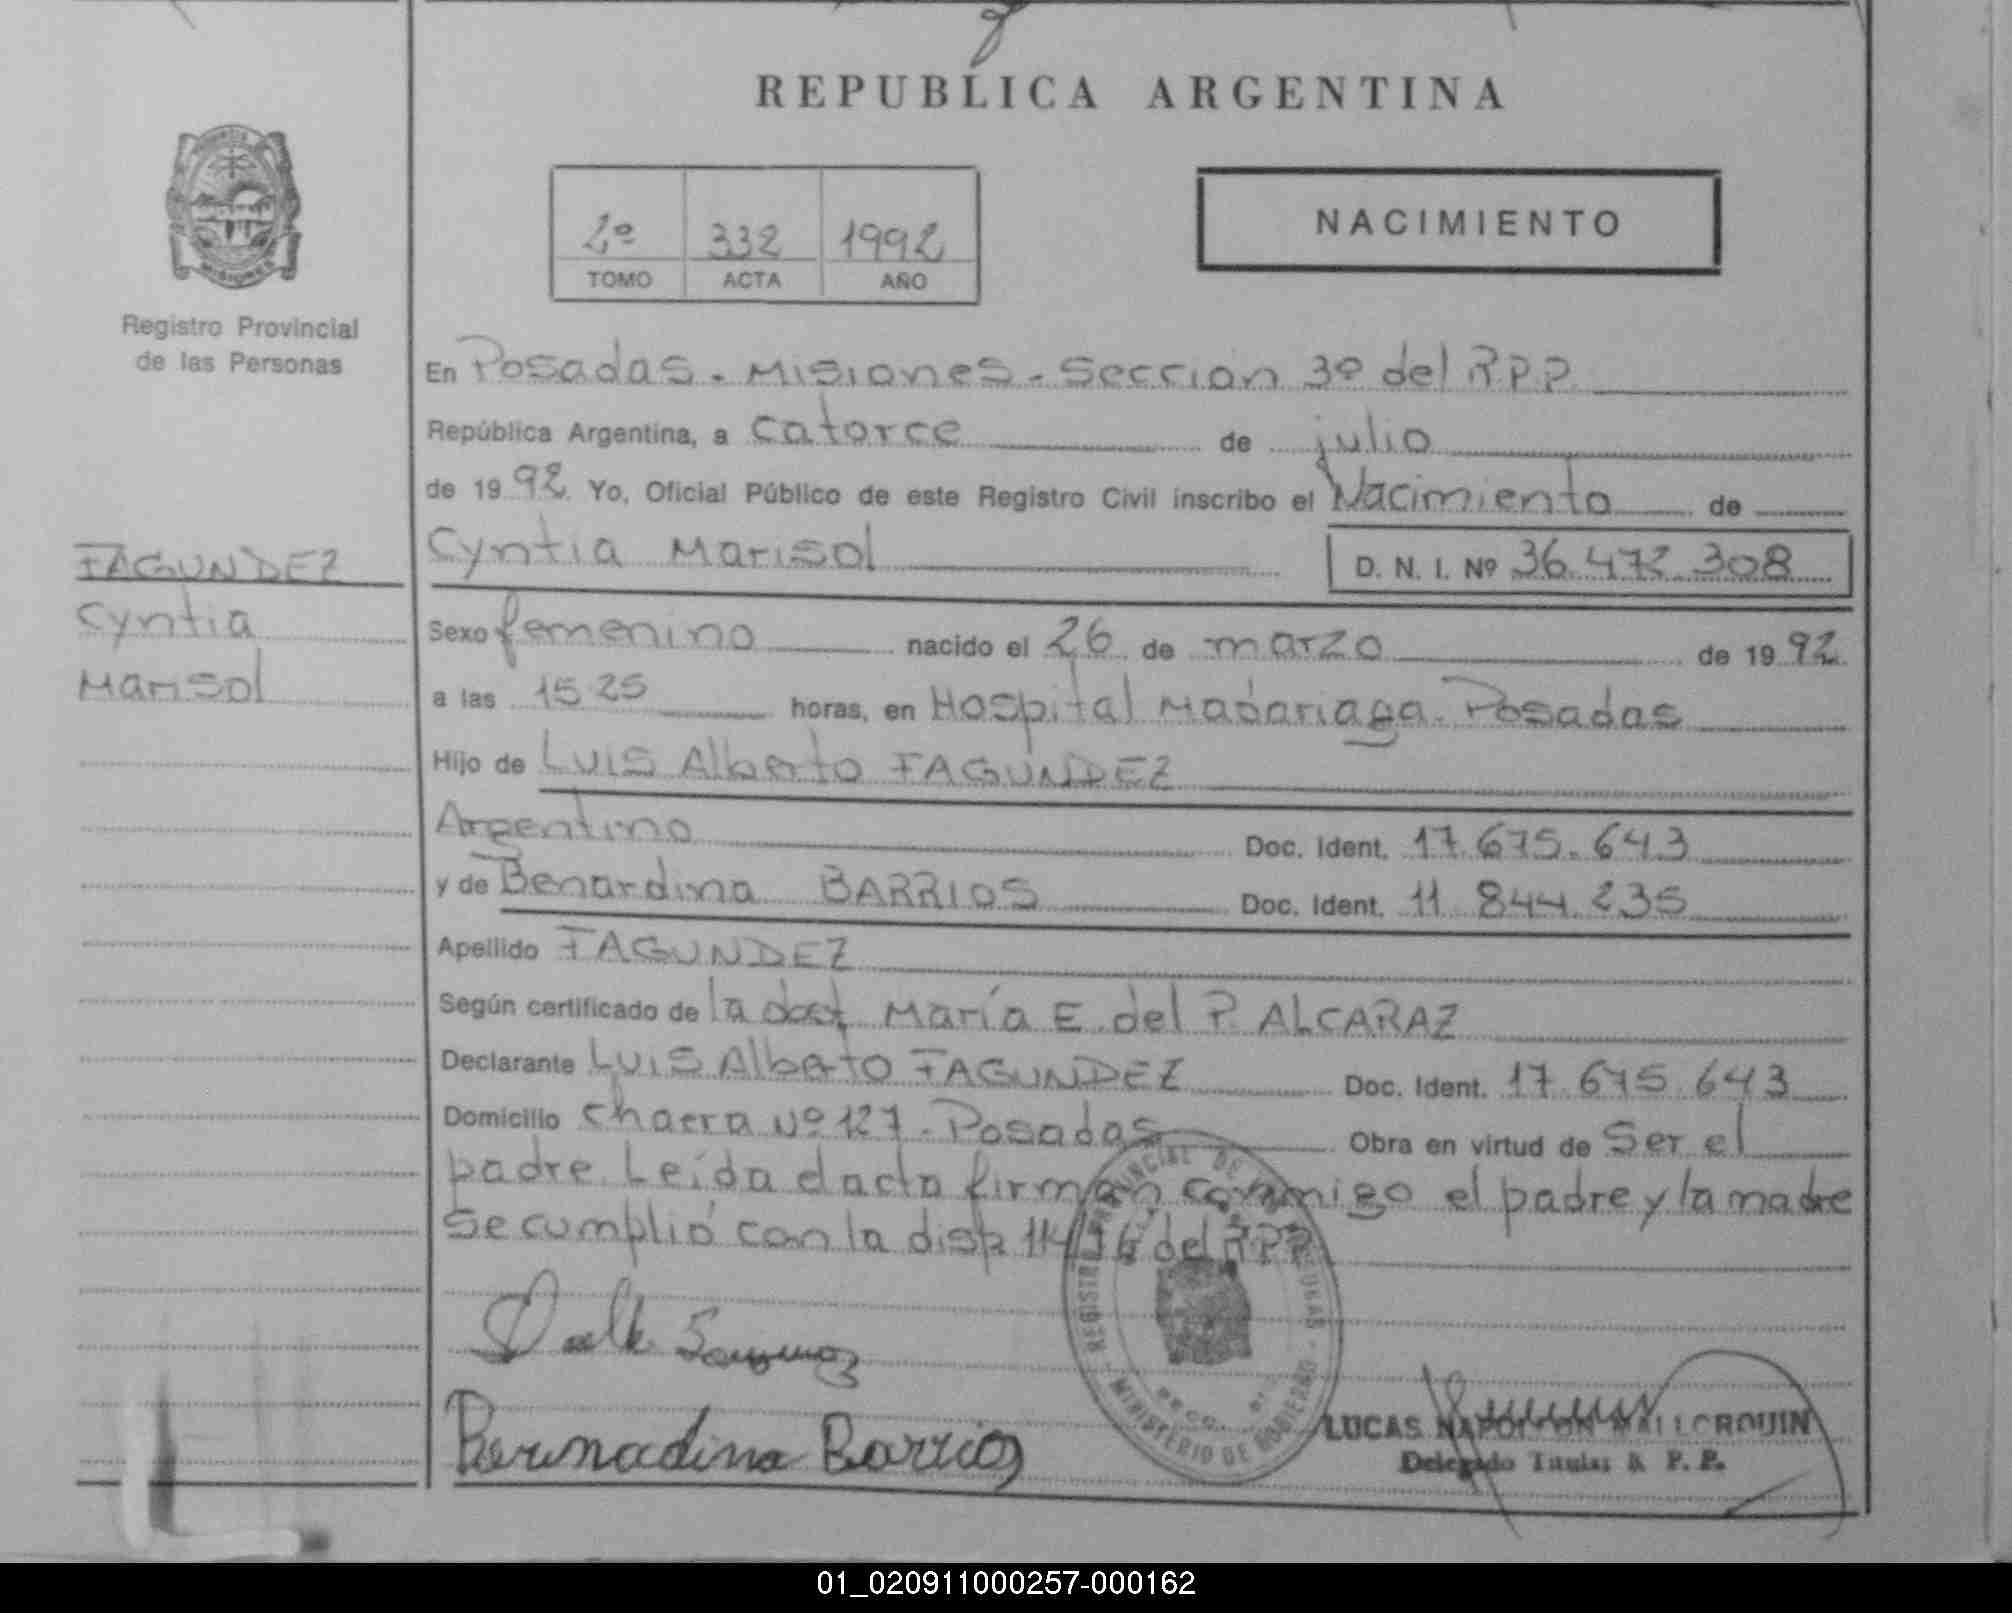 REPUBLICA ARGENTINA
2º 332 1992
TOMO ACTA AÑO
NACIMIENTO
Registro Provincial
de las Personas
En Posadas - Misiones - Seccion 3º del RPP
República Argentina, a catorce de julio
de 1992 Yo, Oficial Público de este Registro Civil inscribo el Nacimiento de
Cyntia Marisol D. N. I. Nº 36.472.308
FAGUNDEZ
Cyntia
Marisol
Sexo femenino nacido el 26 de marzo de 1992
a las 15 25 horas, en Hospital Madariaga. Posadas
Hijo de Luis Alberto FAGUNDEZ
Argentino Doc. Ident. 17.675.643
y de Benardina BARRIOS Doc. Ident. 11.844.235
Apellido FAGUNDEZ
Según certificado de la doct. María E. del P. ALCARAZ
Declarante Luis Alberto FAGUNDEZ Doc. Ident. 17.675.643
Domicilio Chacra Nº 127 - Posadas Obra en virtud de Ser el
padre. Leída el acta firman conmigo el padre y la madre
Se cumplió con la disp 114/76 del RPP
REGISTRO PROVINCIAL DE
MINISTERIO DE GOBIERNO
Bernadina Barrios
LUCAS NAPOLEON MALLORQUIN
Delegado Titular R. P. P.
01_020911000257-000162